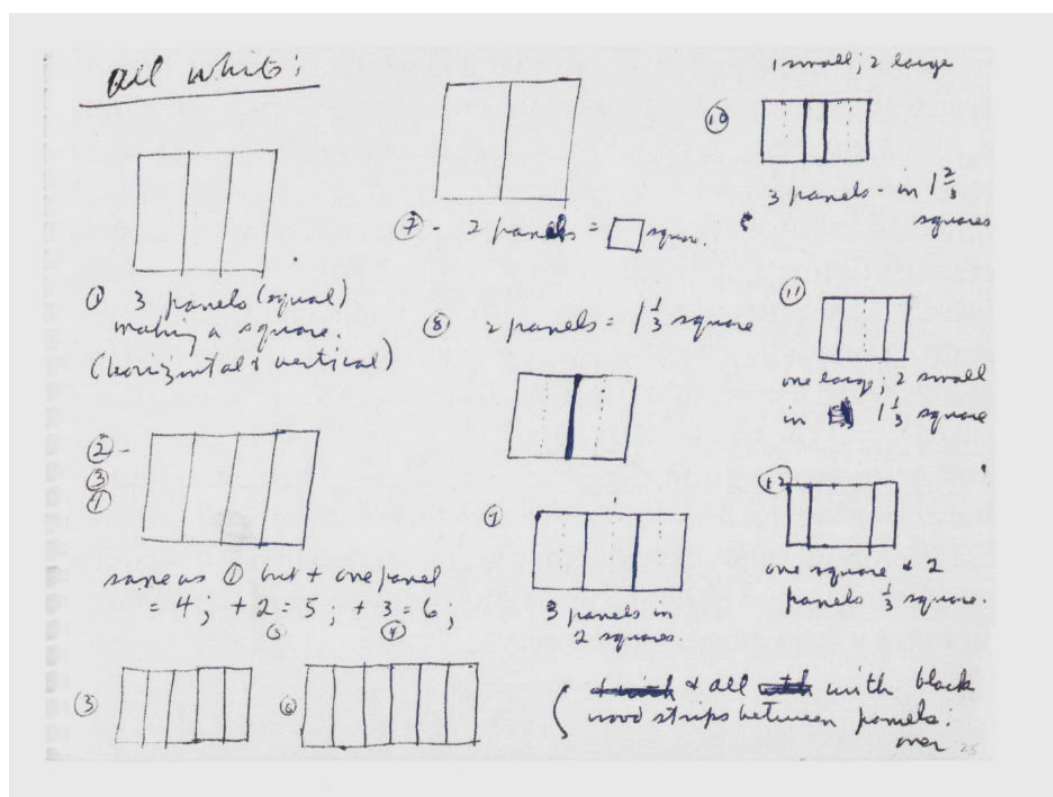 all white:
①
3 panels (equal)
making a square.
(horizontal & vertical)
② -
③
④
same as ① but + one panel
= 4; + 2 = 5; + 3 = 6;
③ ④
③
⑥
⑦ - 2 panels = square.
⑧ 2 panels = 1 1/3 square
⑨
3 panels in
2 squares.
1 small, 2 large
⑩
3 panels - in 1 2/3
squares
⑪
one large; 2 small
in 1 1/3 square
⑫
one square & 2
panels 1/3 square.
& all with black
wood strips between panels.
over
25